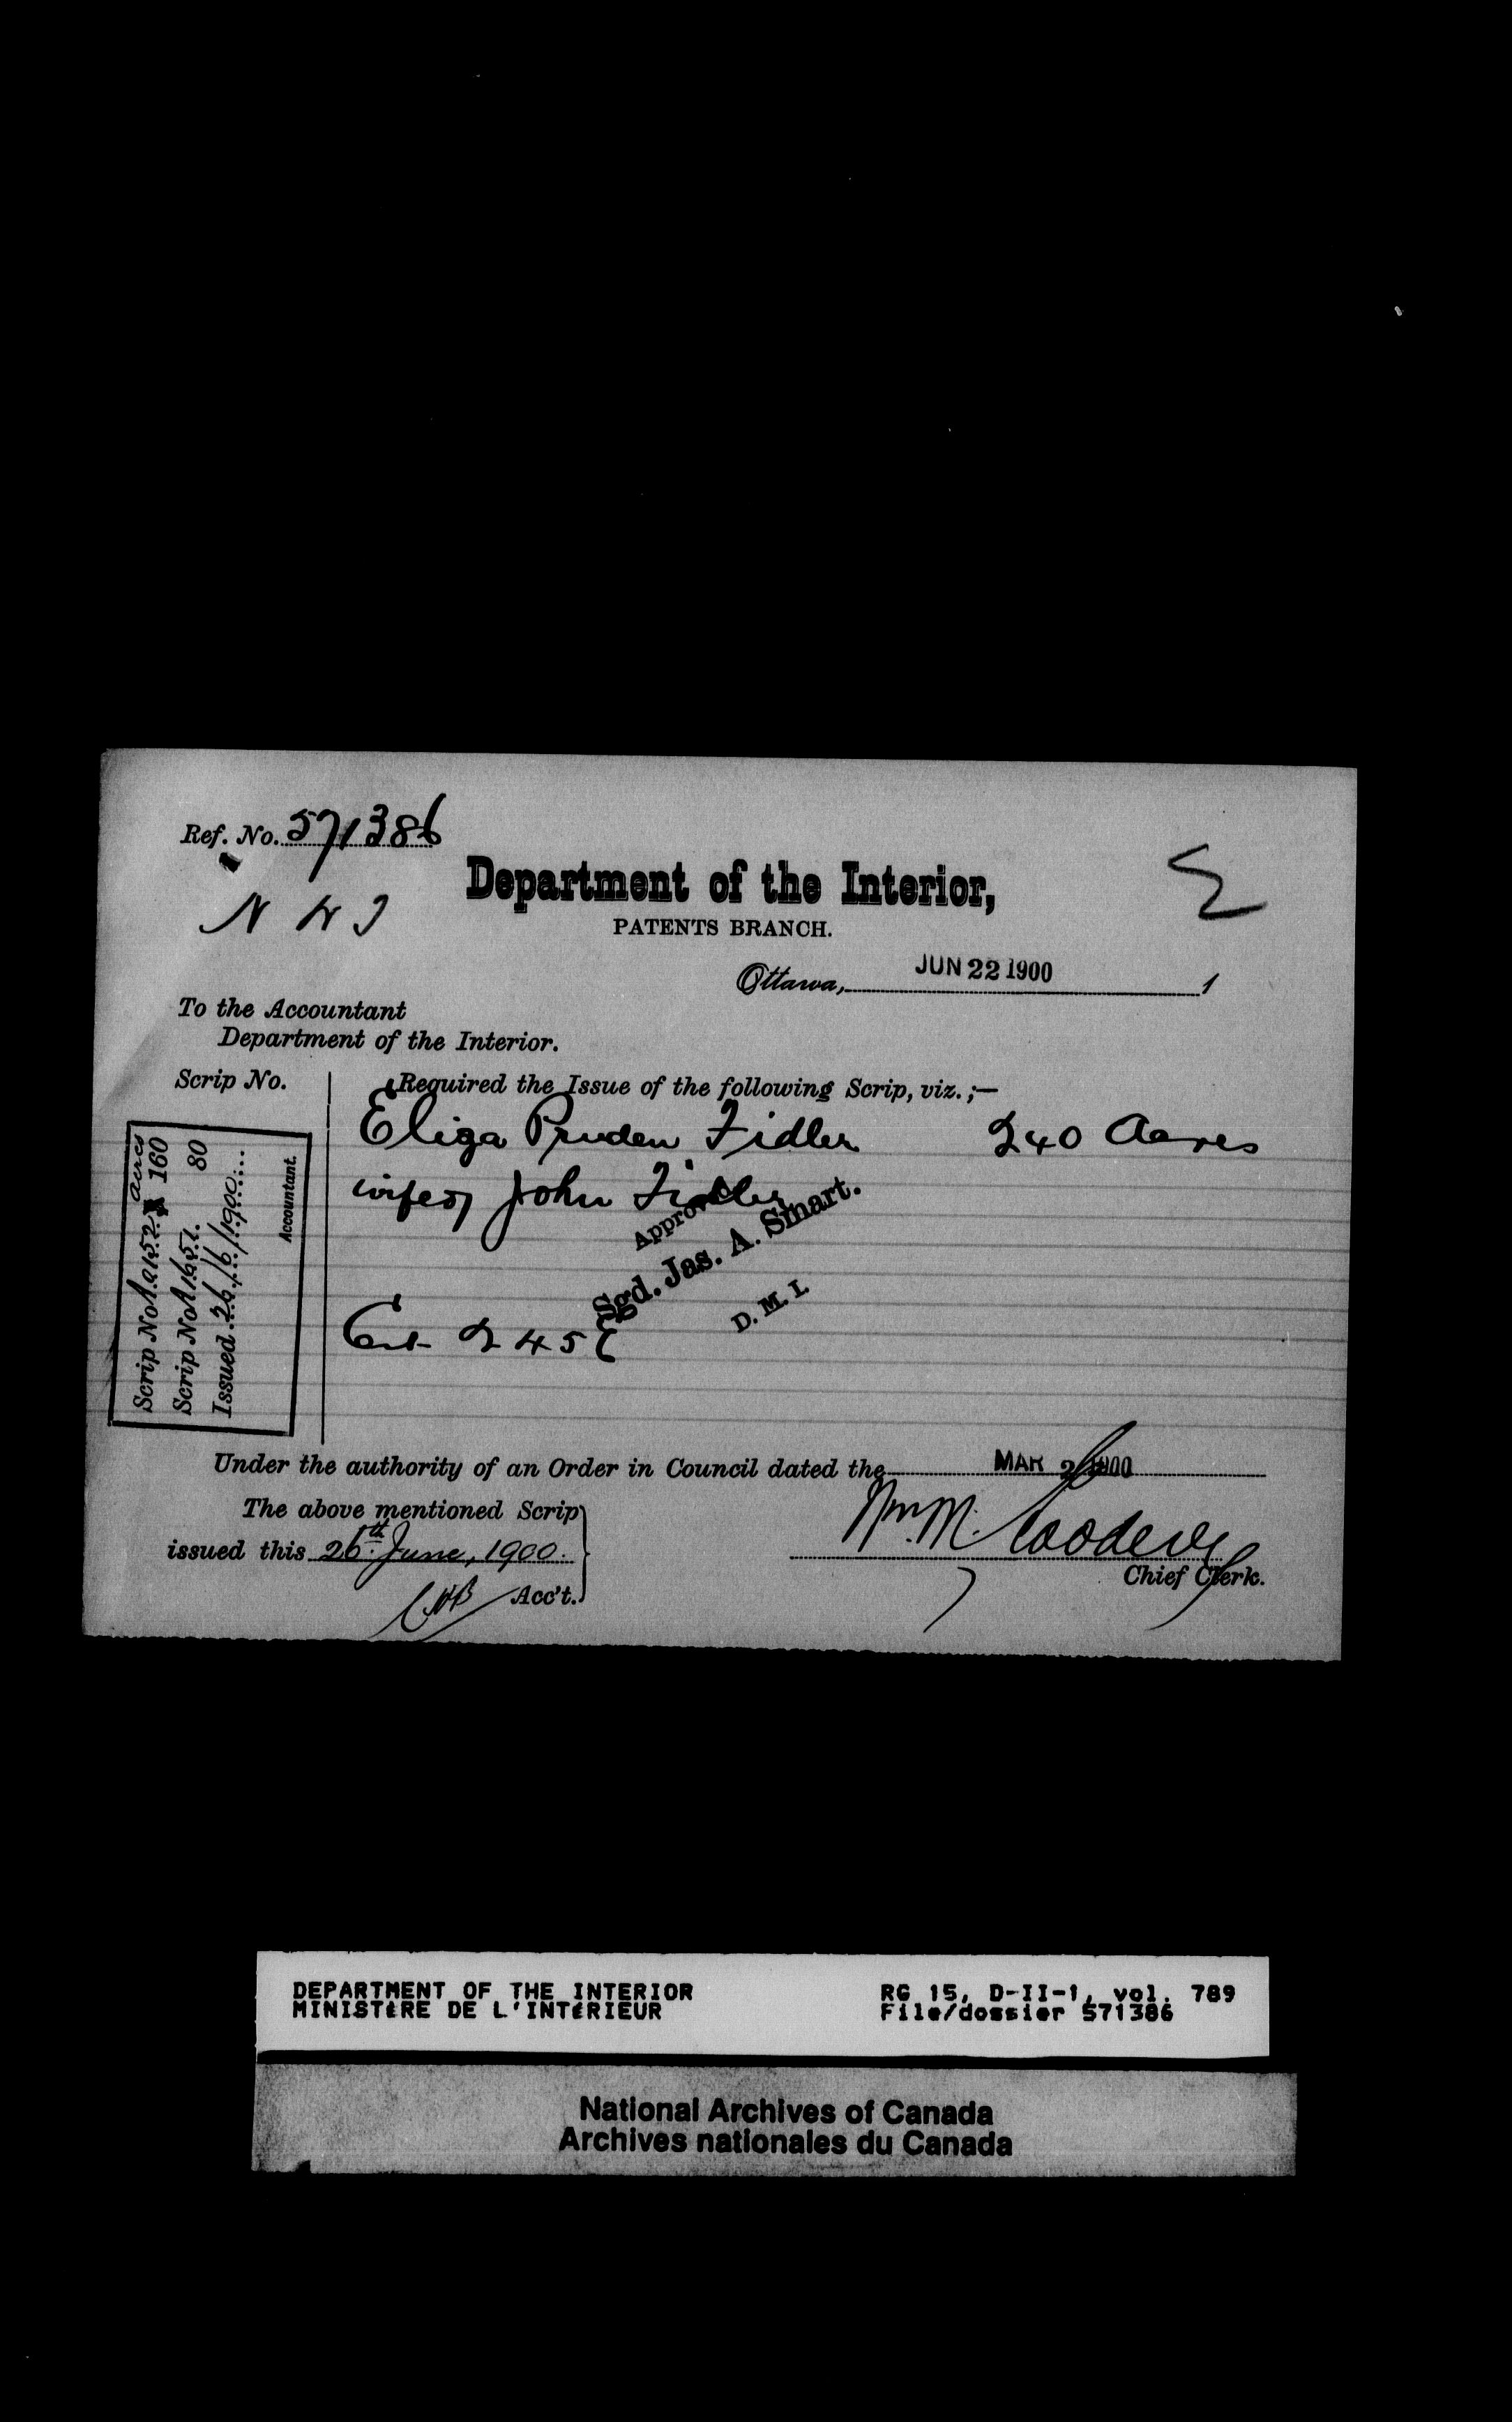 Ref. No. 571386
Department of the Interior,
N W T
PATENTS BRANCH.
Ottawa, JUN 22 1900 1
To the Accountant
Department of the Interior.
Scrip No.
Required the Issue of the following Scrip, viz.;—
Eliza Pruden Fidler 240 Acres
wife of John Fidler
Approved
Sgd. Jas. A. Smart.
D. M. I.
245 E
acres
Scrip No A 9152 160
Scrip No A 1651. 80
Issued 26/6/1900
Accountant.
Under the authority of an Order in Council dated the MAR 2 1900
The above mentioned Scrip
issued this 26th June, 1900.
Acc't.
Wm. M. Goodeve
Chief Clerk.
DEPARTMENT OF THE INTERIOR RG 15, D-II-1, vol. 789
MINISTÈRE DE L'INTÉRIEUR File/dossier 571386
National Archives of Canada
Archives nationales du Canada